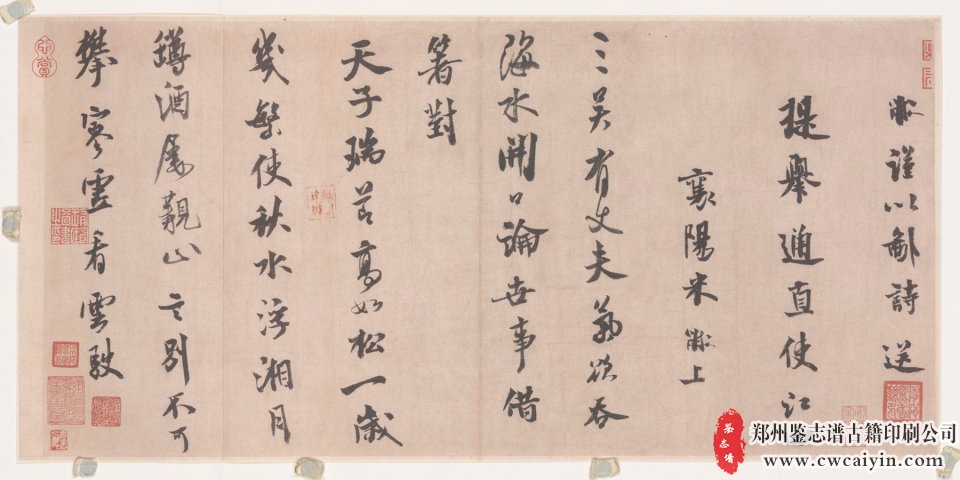 黻謹以鄙詩送
提舉通直使江
襄陽米黻上
三吳有丈夫氣欲吞
海水開口論世事借
箸對
天子瑞節高如松一歲
幾繁使秋水浮湘月
蹲酒屡觀山言別不可
攀寥雲看雲駛
鉴志谱
郑州鉴志谱古籍印刷公司
www.cwcaiyin.com